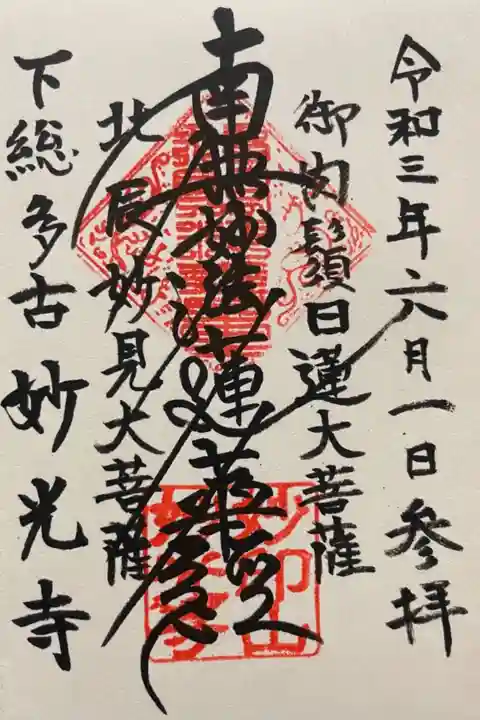 令和三年六月一日参拝
御肉鬚日蓮大菩薩
南無妙法蓮華経
北辰妙見大菩薩
下総多古妙光寺
妙印山